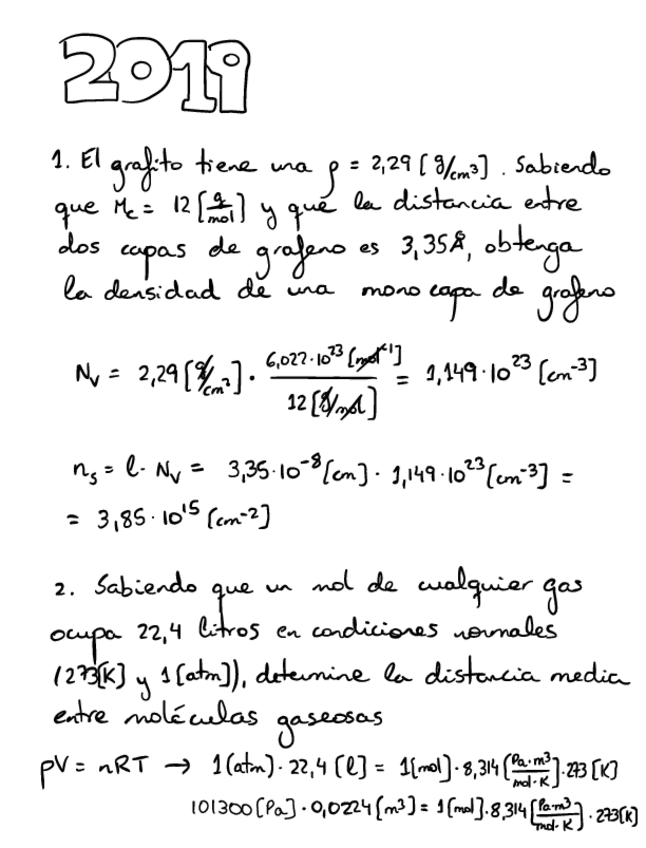 2019
1. El grafito tiene una ρ = 2,29 [g/cm³]. Sabiendo
que Mc = 12 [g/mol] y que la distancia entre
dos capas de grafeno es 3,35Å, obtenga
la densidad de una monocapa de grafeno
Nv = 2,29 [g/cm²] · 6,022·10²³ [mol⁻¹] / 12 [g/mol] = 1,149·10²³ [cm⁻³]
ns = l· Nv = 3,35·10⁻⁸ [cm] · 1,149·10²³ [cm⁻³] =
= 3,85·10¹⁵ [cm⁻²]
2. Sabiendo que un mol de cualquier gas
ocupa 22,4 litros en condiciones normales
(273[K] y 1[atm]), determine la distancia media
entre moléculas gaseosas
pV = nRT → 1(atm)· 22,4 [l] = 1[mol]·8,314 [Pa·m³/mol·K]·273 [K]
101300 [Pa]·0,0224 [m³] = 1[mol]·8,314 [Pa·m³/mol·K]·273[K]